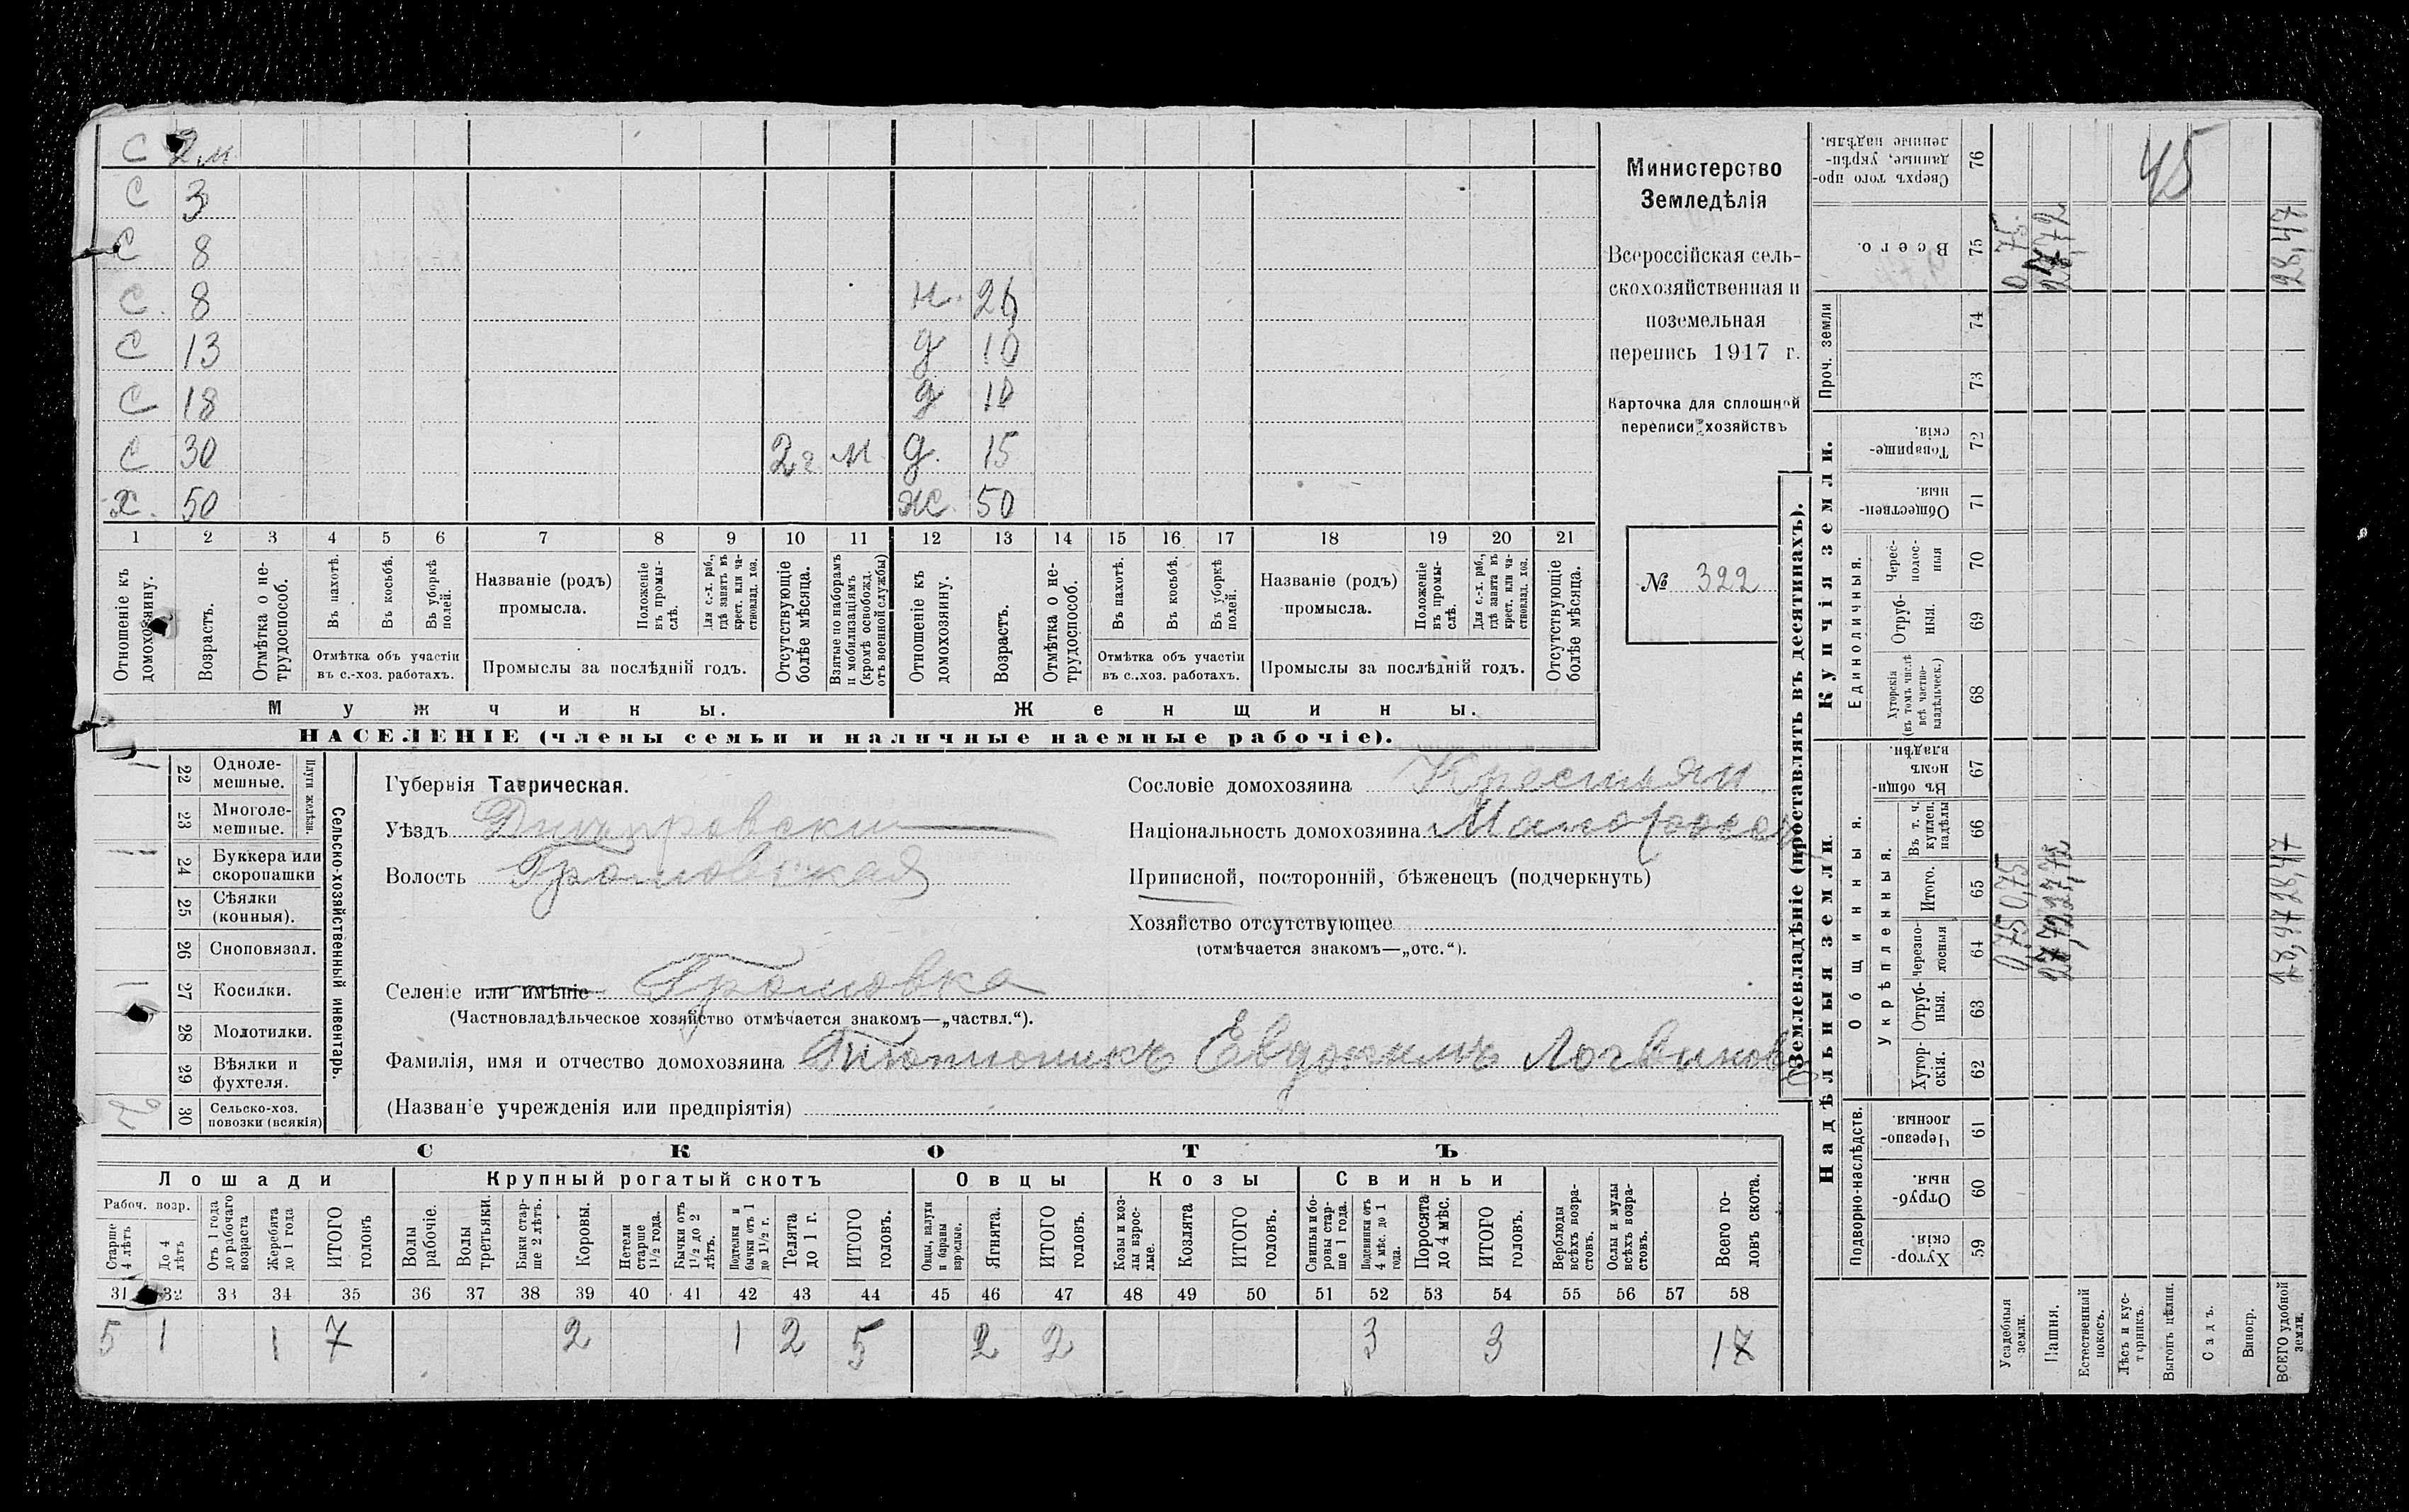 С 2 м
С 3
С 8
С. 8 н. 26
С 13 д 10
С 18 д
С 30 2г м д. 15
Х. 50 ж. 50
1 2 3 4 5 6 7 8 9 10 11 12 13 14 15 16 17 18 19 20 21
Отношеніе къ домохозяину.
Возрастъ.
Отмѣтка о не-трудоспособ.
Въ пахотѣ.
Въ косьбѣ.
Въ уборкѣ полей.
Отмѣтка объ участіи
въ с.-хоз. работахъ.
Названіе (родъ)
промысла.
Положеніе въ промы-слѣ.
Для с.-х. раб., гдѣ занятъ въ крест. или ча-стновлад. хоз.
Промыслы за послѣдній годъ.
Отсутствующіе болѣе мѣсяца.
Взятые по наборамъ и мобилизаціямъ (кромѣ освобожд. отъ военной службы)
Отношеніе къ домохозяину.
Возрастъ.
Отмѣтка о не-трудоспособ.
Въ пахотѣ.
Въ косьбѣ.
Въ уборкѣ полей.
Отмѣтка объ участіи
въ с.-хоз. работахъ.
Названіе (родъ)
промысла.
Положеніе въ промы-слѣ.
Для с.-х. раб., гдѣ занята въ крест. или ча-стновлад. хоз.
Промыслы за послѣдній годъ.
Отсутствующіе болѣе мѣсяца.
Мужчины. Женщины.
НАСЕЛЕНІЕ (члены семьи и наличные наемные рабочіе).
Министерство
Земледѣлія
Всероссійская сель-
скохозяйственная и
поземельная
перепись 1917 г.
Карточка для сплошной
переписи хозяйствъ
№ 322
Сельско-хозяйственный инвентарь.
Плуги желѣзн.
1 22 Одноле-мешные.
23 Многоле-мешные.
1 24 Буккера или скоропашки
25 Сѣялки (конныя).
26 Сноповязал.
1 27 Косилки.
28 Молотилки.
29 Вѣялки и фухтеля.
2 30 Сельско-хоз. повозки (всякія)
Губернія Таврическая.
Уѣздъ Днѣпровски
Волость Громовская
Селеніе или имѣніе Громовка
(Частновладѣльческое хозяйство отмѣчается знакомъ—„частвл.“).
Фамилія, имя и отчество домохозяина Тютюникъ Евдокимъ Логвинов
(Названіе учрежденія или предпріятія)
Сословіе домохозяина Крестьян.
Національность домохозяина Малоросс
Приписной, посторонній, бѣженецъ (подчеркнуть)
Хозяйство отсутствующее
(отмѣчается знакомъ—„отс.“).
СКОТЪ
Лошади Крупный рогатый скотъ Овцы Козы Свиньи
Рабоч. возр.
Старше 4 лѣтъ
До 4 лѣтъ
Отъ 1 года до рабочаго возраста
Жеребята до 1 года
ИТОГО головъ
Волы рабочіе.
Волы третьяки.
Быки стар-ше 2 лѣтъ.
Коровы.
Нетели старше 1½ года.
Бычки отъ 1½ до 2 лѣтъ.
Подтелки и бычки отъ 1 до 1½ г.
Телята до 1 г.
ИТОГО головъ.
Овцы, валухи и бараны взрослые.
Ягнята.
ИТОГО головъ.
Козы и коз-лы взрос-лые.
Козлята
ИТОГО головъ.
Свиньи и бо-ровы стар-ше 1 года.
Подсвинки отъ 4 мѣс. до 1 года.
Поросята до 4 мѣс.
ИТОГО головъ.
Верблюды всѣхъ возра-стовъ.
Ослы и мулы всѣхъ возра-стовъ.
Всего го-ловъ скота.
31 32 33 34 35 36 37 38 39 40 41 42 43 44 45 46 47 48 49 50 51 52 53 54 55 56 57 58
5 1 1 7 2 1 2 5 2 2 3 3 17
Землевладѣніе (проставлять въ десятинахъ).
Надѣльныя земли. Купчія земли.
Проч. земли
Подворно-наслѣдств.
Общинныя.
Укрѣпленныя.
Единоличныя.
Хутор-скія. 59
Отруб-ныя. 60
Черезпо-лосныя. 61
Хутор-скія. 62
Отруб-ныя. 63
Черезпо-лосныя 64
Итого. 65
Въ т. ч. куплен. надѣлы 66
Въ общин-номъ владѣн. 67
Хуторскія (въ томъ числѣ всѣ частно-владѣльческ.) 68
Отруб-ныя. 69
Черес-полос-ныя 70
Обществен-ныя. 71
Товарище-скія. 72
73
74
Всего. 75
Сверхъ того про-данные, укрѣп-ленные надѣлы. 76
Усадебныя земли. 0,75 0,75 0,75.
Пашня. 27,72 27,72 27,72
Естественный покосъ.
Лѣсъ и кус-тарникъ.
Выгонъ цѣлин.
Садъ.
Виногр.
ВСЕГО удобной земли. 28,47 28,47 28,47
45